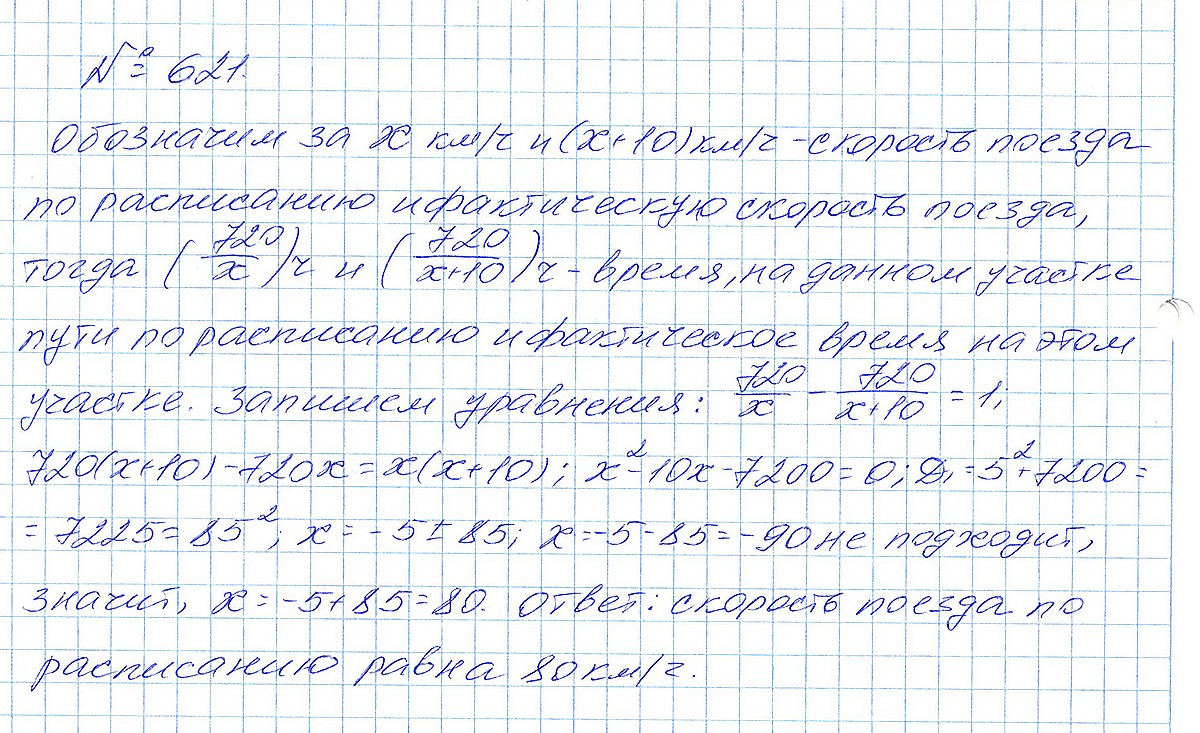 № 621.
Обозначим за x км/ч и (x+10) км/ч - скорость поезда
по расписанию и фактическую скорость поезда,
тогда (720/x) ч и (720/(x+10)) ч - время, на данном участке
пути по расписанию и фактическое время на этом
участке. Запишем уравнения: 720/x - 720/(x+10) = 1;
720(x+10)-720x = x(x+10); x²-10x-7200=0; D₁=5²+7200=
= 7225=85²; x = -5±85; x=-5-85=-90 не подходит,
значит, x = -5+85=80. Ответ: скорость поезда по
расписанию равна 80 км/ч.